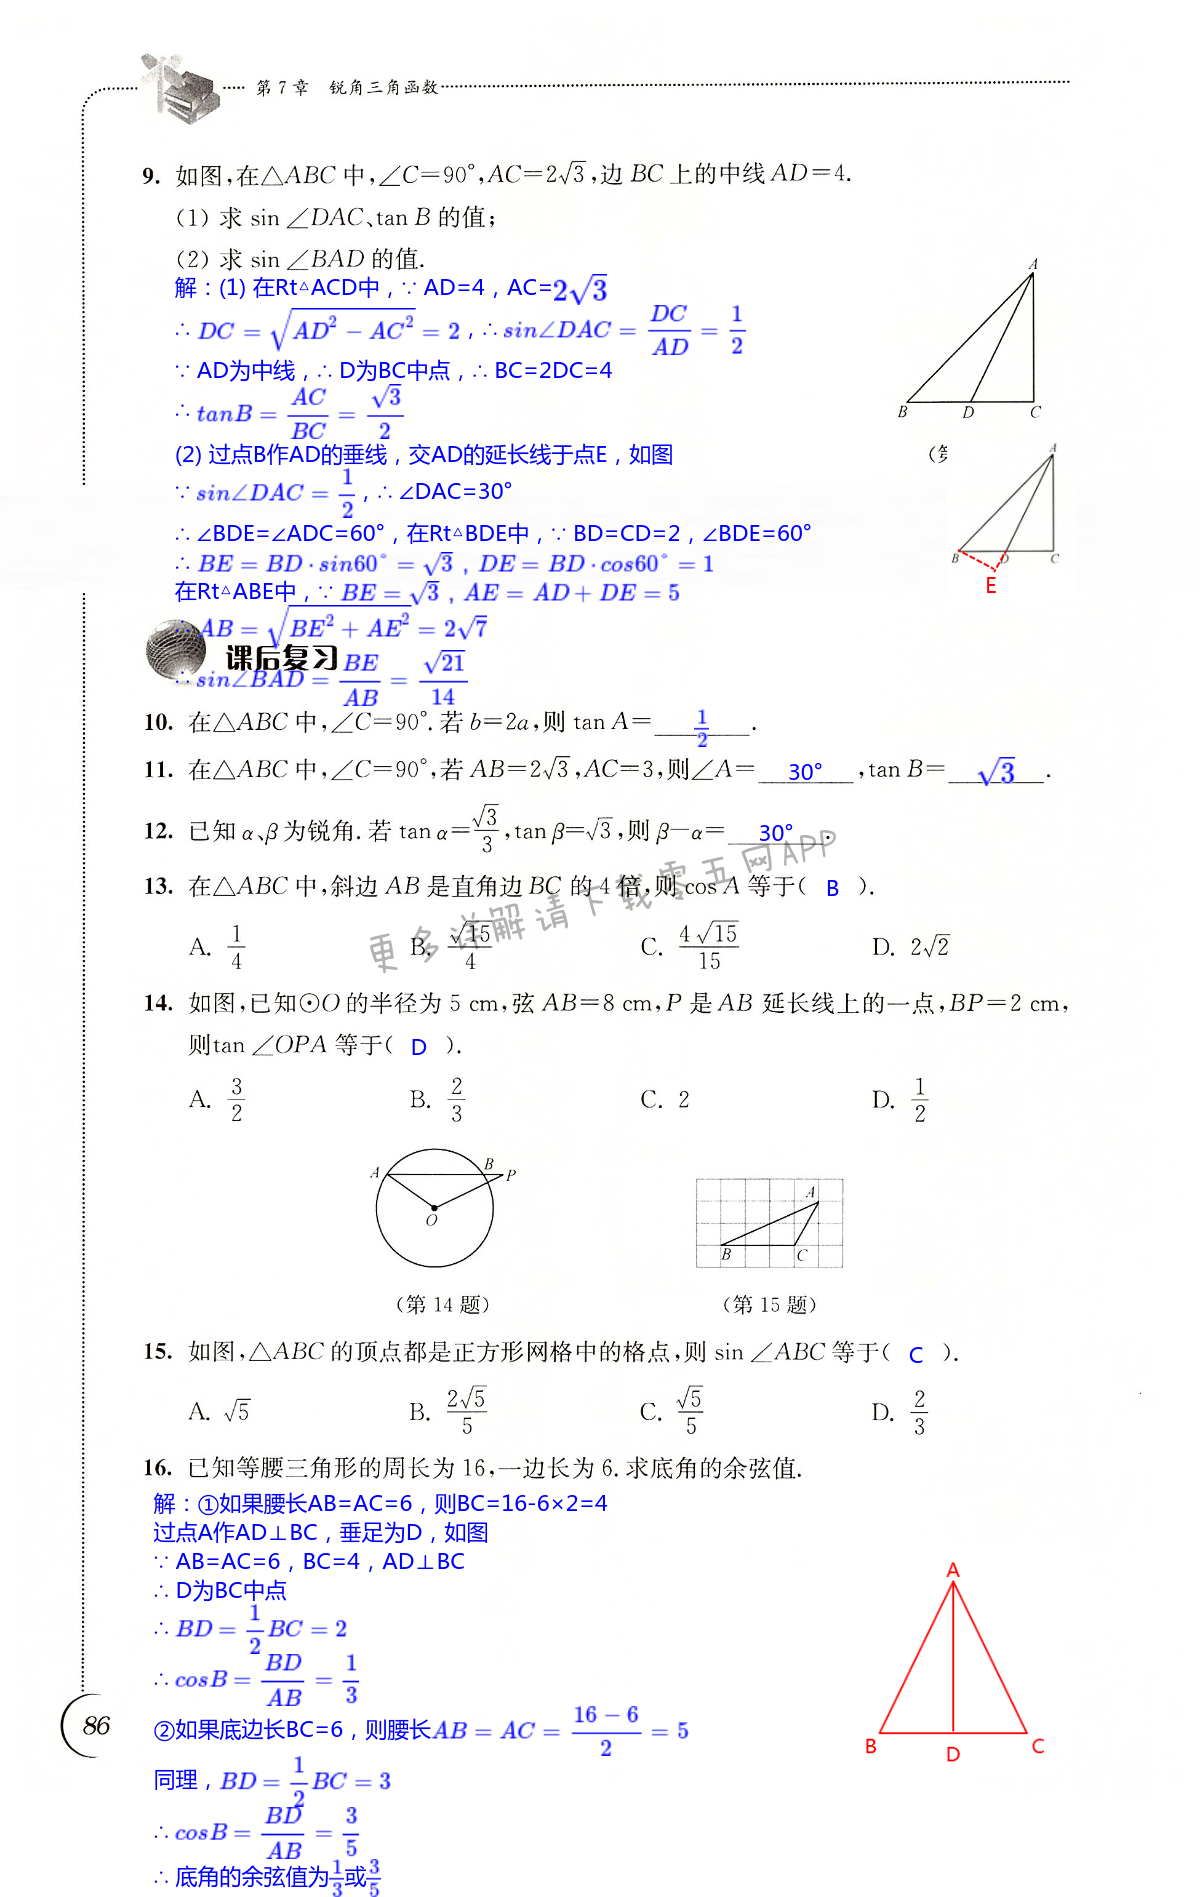 第7章 锐角三角函数
9. 如图,在△ABC中,∠C=90°,AC=2√3,边BC上的中线AD=4.
(1) 求 sin∠DAC、tan B 的值;
(2) 求 sin∠BAD 的值.
解：(1) 在Rt△ACD中，∵ AD=4，AC=2√3
∴ DC = √(AD² − AC²) = 2，∴ sin∠DAC = DC/AD = 1/2
∵ AD为中线，∴ D为BC中点，∴ BC=2DC=4
∴ tanB = AC/BC = √3/2
(2) 过点B作AD的垂线，交AD的延长线于点E，如图
∵ sin∠DAC = 1/2，∴ ∠DAC=30°
∴ ∠BDE=∠ADC=60°，在Rt△BDE中，∵ BD=CD=2，∠BDE=60°
∴ BE = BD · sin60° = √3，DE = BD · cos60° = 1
在Rt△ABE中，∵ BE = √3，AE = AD + DE = 5
∴ AB = √(BE² + AE²) = 2√7
∴ sin∠BAD = BE/AB = √21/14
A
B D C
A
B D C
E
课后复习
10. 在△ABC中,∠C=90°.若b=2a,则 tan A= 1/2 .
11. 在△ABC中,∠C=90°,若AB=2√3,AC=3,则∠A= 30° ,tan B= √3 .
12. 已知α、β为锐角.若 tan α=√3/3,tan β=√3,则 β−α= 30° .
13. 在△ABC中,斜边AB是直角边BC的4倍,则cos A 等于( B ).
A. 1/4 B. √15/4 C. 4√15/15 D. 2√2
更多详解请下载零五网APP
14. 如图,已知⊙O的半径为5 cm,弦AB=8 cm,P是AB延长线上的一点,BP=2 cm,
则tan∠OPA 等于( D ).
A. 3/2 B. 2/3 C. 2 D. 1/2
A B P
O
A
B C
(第14题) (第15题)
15. 如图,△ABC的顶点都是正方形网格中的格点,则 sin∠ABC 等于( C ).
A. √5 B. 2√5/5 C. √5/5 D. 2/3
16. 已知等腰三角形的周长为16,一边长为6.求底角的余弦值.
解：①如果腰长AB=AC=6，则BC=16-6×2=4
过点A作AD⊥BC，垂足为D，如图
∵ AB=AC=6，BC=4，AD⊥BC
∴ D为BC中点
∴ BD = 1/2 BC = 2
∴ cosB = BD/AB = 1/3
②如果底边长BC=6，则腰长AB = AC = (16 − 6)/2 = 5
同理，BD = 1/2 BC = 3
∴ cosB = BD/AB = 3/5
∴ 底角的余弦值为1/3或3/5
A
B D C
86